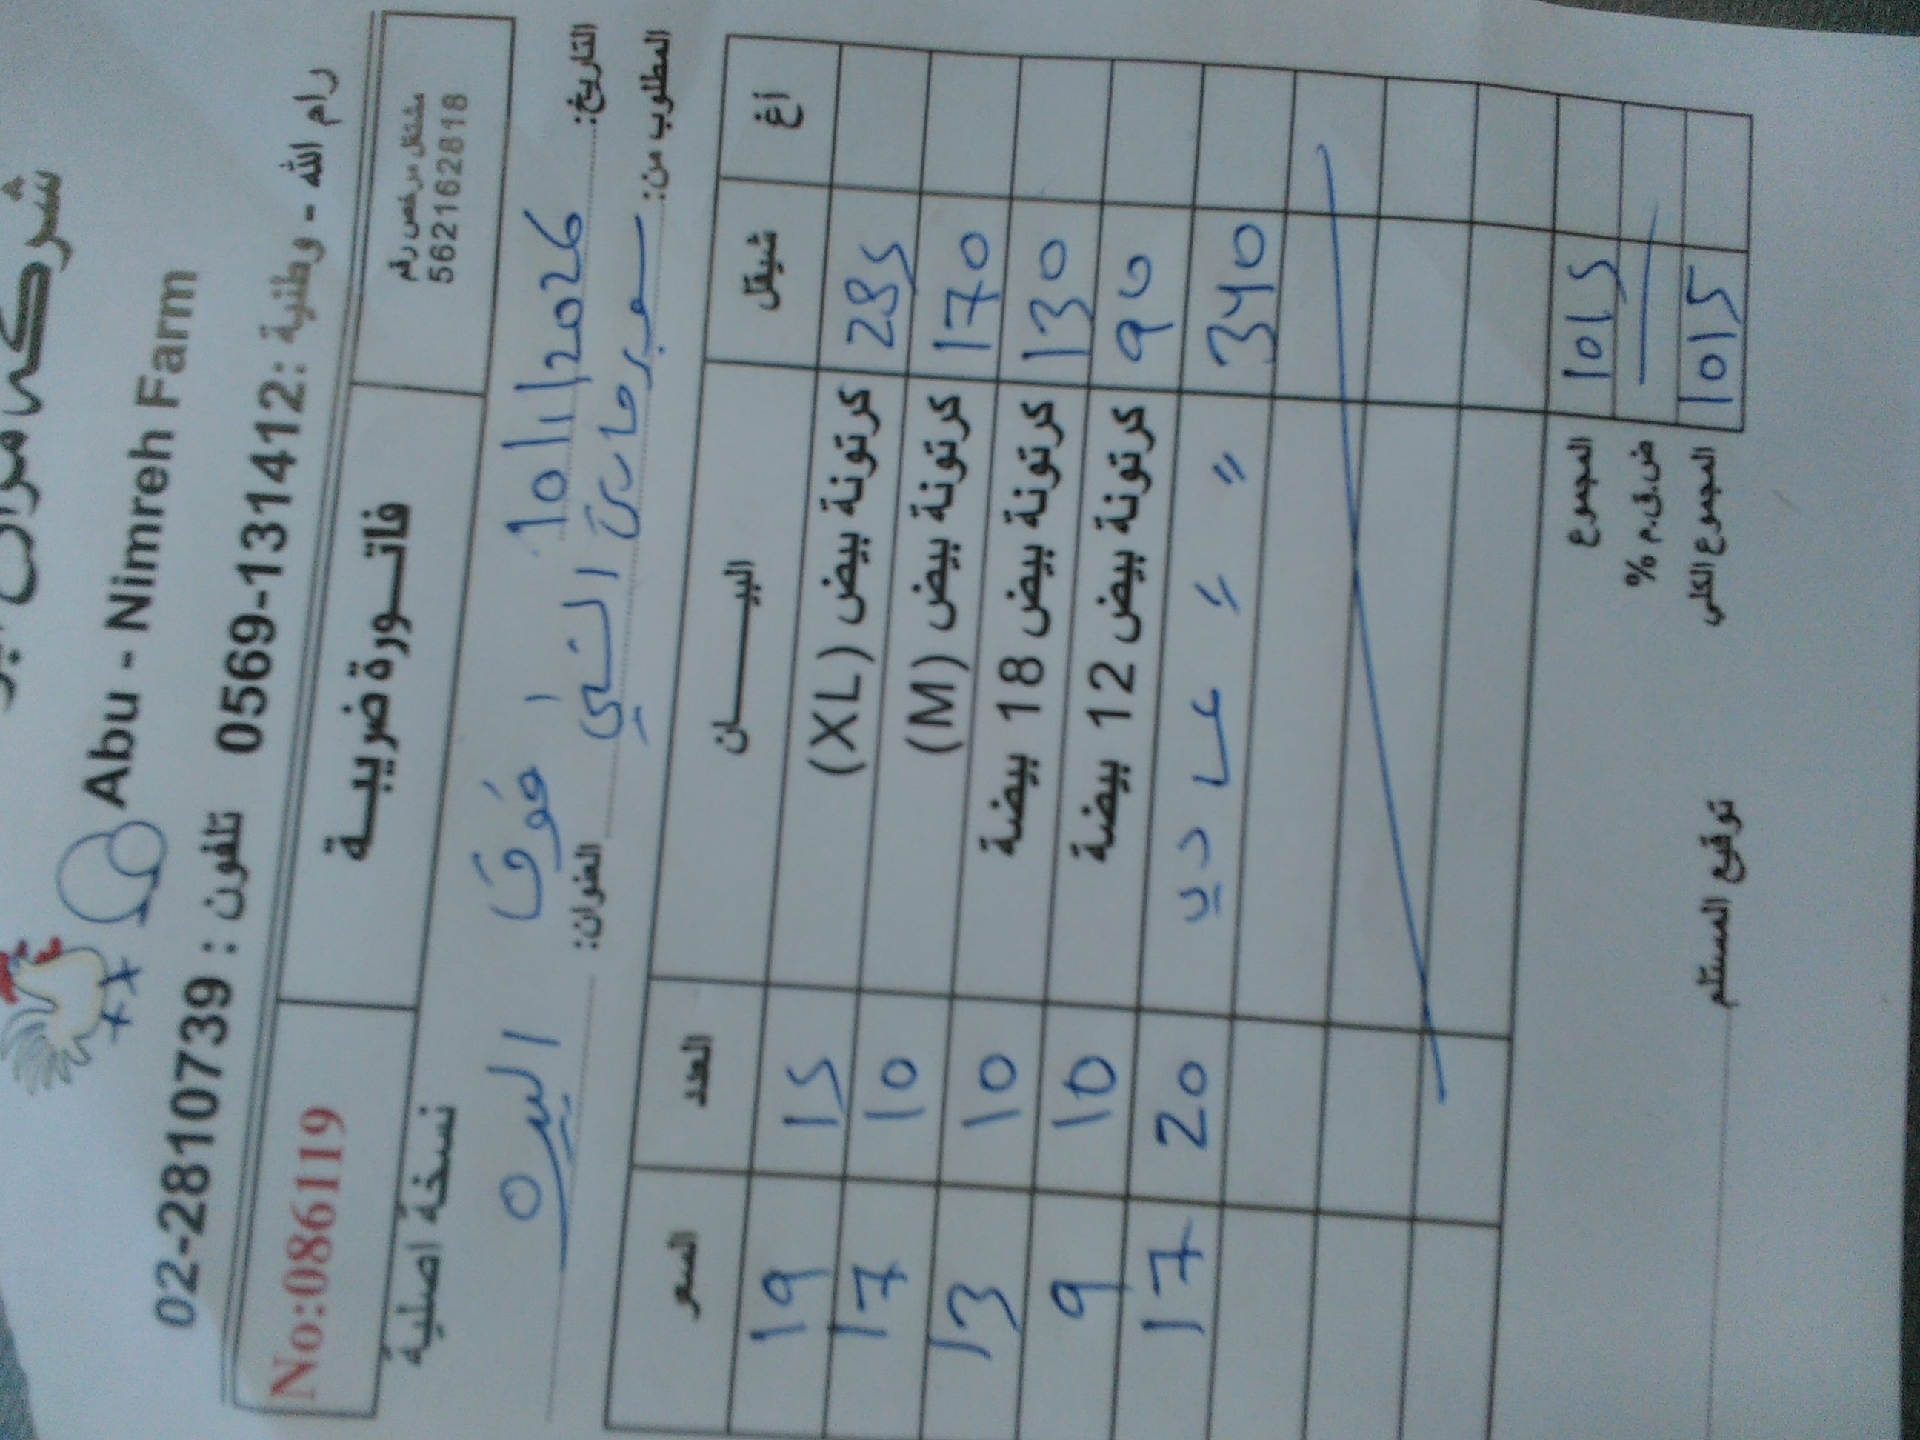 شركة
Abu - Nimreh Farm
رام الله - وطنية : 0569-131412 تلفون : 02-2810739
مشتغل مرخص رقم
562162818
فاتـــورة ضريبيـــة
No:086119
نسخة اصلية
التاريخ: 10/1/2026 العنوان: البيره
المطلوب من: سوبر ماركت
أغ شيقل البيـــــــان العدد السعر
285 كرتونة بيض (XL) 15 19
170 كرتونة بيض (M) 10 17
130 كرتونة بيض 18 بيضة 10 13
90 كرتونة بيض 12 بيضة 10 9
340 " " عادي 20 17
المجموع 1015
ض.ق.م %
المجموع الكلي 1015
توقيع المستلم